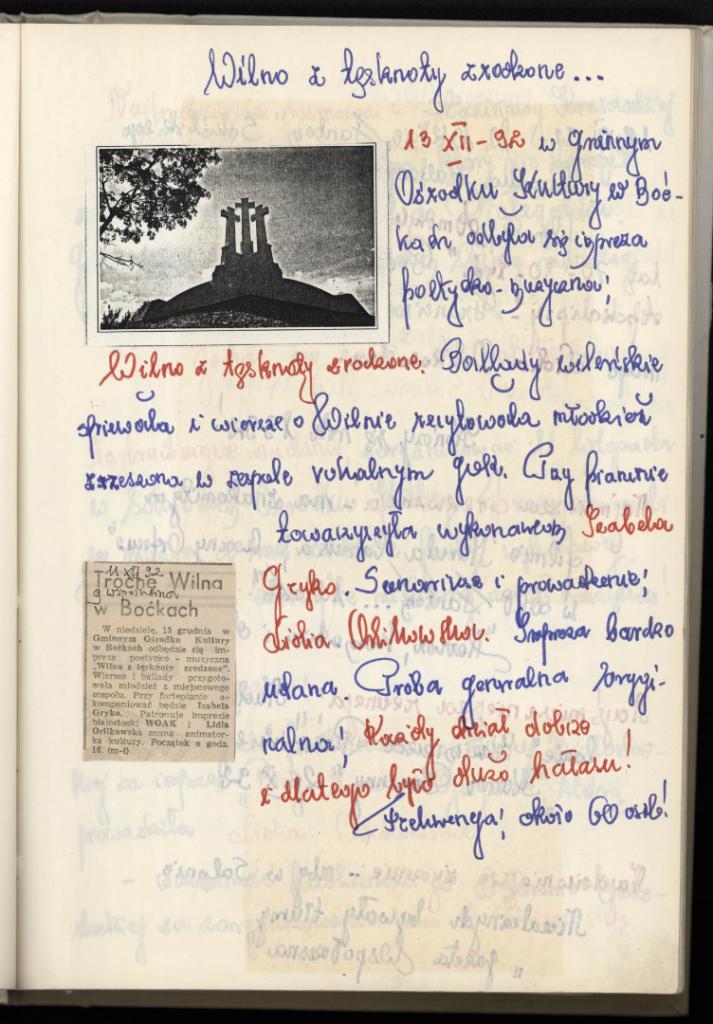 Wilno z tęsknoty zrodzone...
13 XII - 92 w Gminnym
Ośrodku Kultury w Boć-
kach odbyła się impreza
poetycko - muzyczna!
Wilno z tęsknoty zrodzone. Ballady wileńskie
śpiewała i wiersze o Wilnie recytowała młodzież
zrzeszona w zespole wokalnym GOK. Przy pianinie
towarzyszyła wykonawcom Izabela
Gryko. Scenariusz i prowadzenie!
Lidia Orlikowska. Impreza bardzo
udana. Próba generalna orygi-
nalna! Każdy chciał dobrze
i dlatego było dużo hałasu!
frekwencja! około 60 osób!
11 XII 92
Trochę Wilna
G Współczesna
w Boćkach
W niedzielę, 13 grudnia w
Gminnym Ośrodku Kultury
w Boćkach odbędzie się im-
preza poetycko - muzyczna
„Wilno z tęsknoty zrodzone".
Wiersze i ballady przygoto-
wała młodzież z miejscowego
zespołu. Przy fortepianie a-
kompaniować będzie Izabela
Gryko. Patronuje imprezie
białostocki WOAK i Lidia
Orlikowska znana animator-
ka kultury. Początek o godz.
16. (m-t)